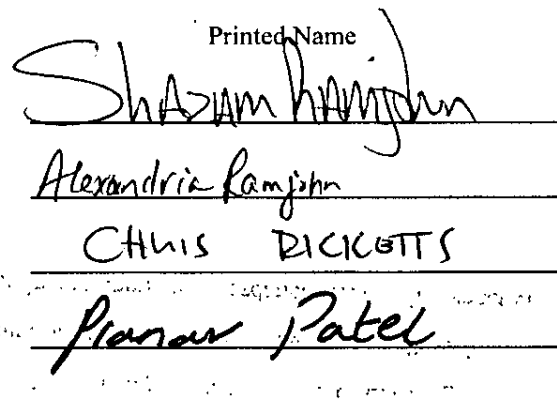 Printed Name
Shazam Ramjohn
Alexandria Ramjohn
CHRIS RICKETTS
Pranav Patel